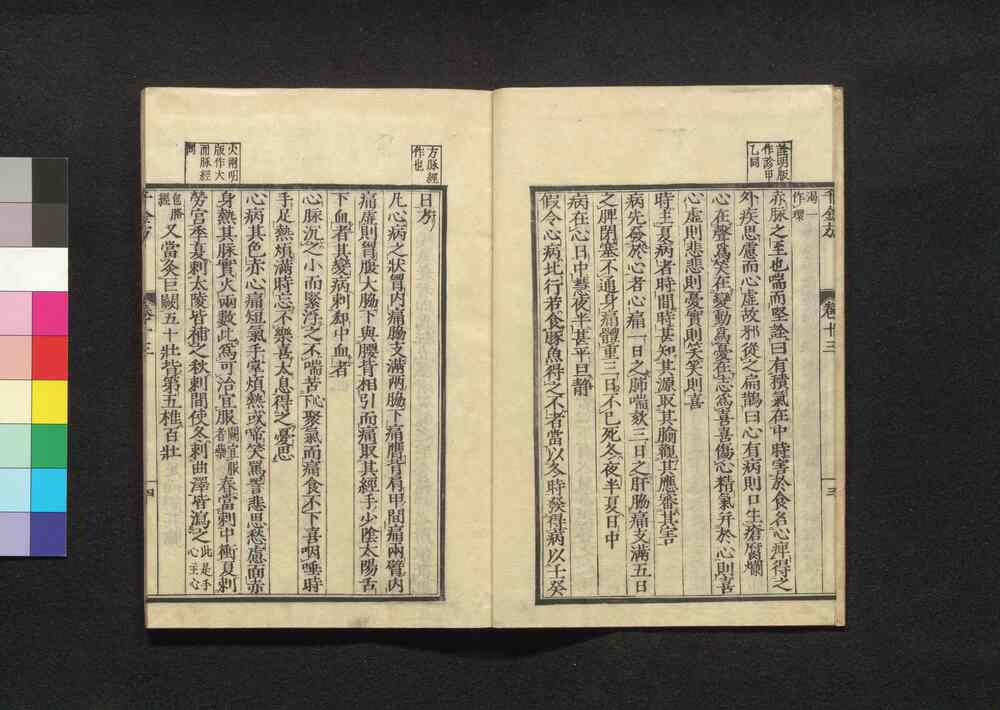 詮明版
作診甲
乙同
千金方 卷十三 三
湯一
作環
赤脉之至也喘而堅詮曰有積氣在中時害於食名心痺得之
外疾思慮而心虛故邪從之扁鵲曰心有病則口生瘡腐爛
心在聲爲笑在變動爲憂在志爲喜喜傷心精氣并於心則喜
心虛則悲悲則憂實則笑笑則喜
時主夏病者時間時甚知其源取其腧觀其應審其害
病先發於心者心痛一日之肺喘欬三日之肝脇痛支滿五日
之脾閉塞不通身痛體重三日不已死冬夜半夏日中
病在心日中慧夜半甚平旦靜
假令心病北行若食豚魚得之不者當以冬時發得病以壬癸
方脉經
作也
火兩明
版作大
而脉經
同
日方
凡心病之狀胷内痛脇支滿兩脇下痛膺背肩甲間痛兩臂内
痛虛則胷腹大脇下與腰背相引而痛取其經手少陰太陽舌
下血者其變病刺郄中血者
心脉沉之小而緊浮之不喘苦心下聚氣而痛食不下喜咽唾時
手足熱煩滿時忘不樂喜太息得之憂思
心病其色赤心痛短氣手掌煩熱或啼笑罵詈悲思愁慮面赤
身熱其脉實火兩數此爲可治宜服闕宜服者藥春當刺中衝夏刺
勞宮季夏刺太陵皆補之秋刺間使冬刺曲澤皆瀉之此是手心主心
包胳經又當灸巨闕五十壯背第五椎百壯
千金方 卷十三 四